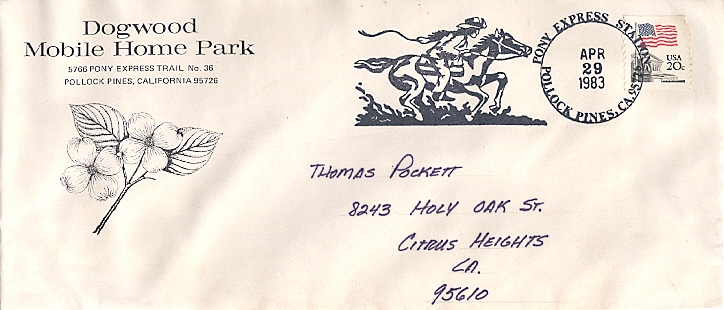 Dogwood
Mobile Home Park
5766 PONY EXPRESS TRAIL No. 36
POLLOCK PINES, CALIFORNIA 95726
PONY EXPRESS STATION
APR
29
1983
POLLOCK PINES, CA. 957
USA
20c
THOMAS POCKETT
8243 HOLY OAK ST.
CITRUS HEIGHTS
CA.
95610